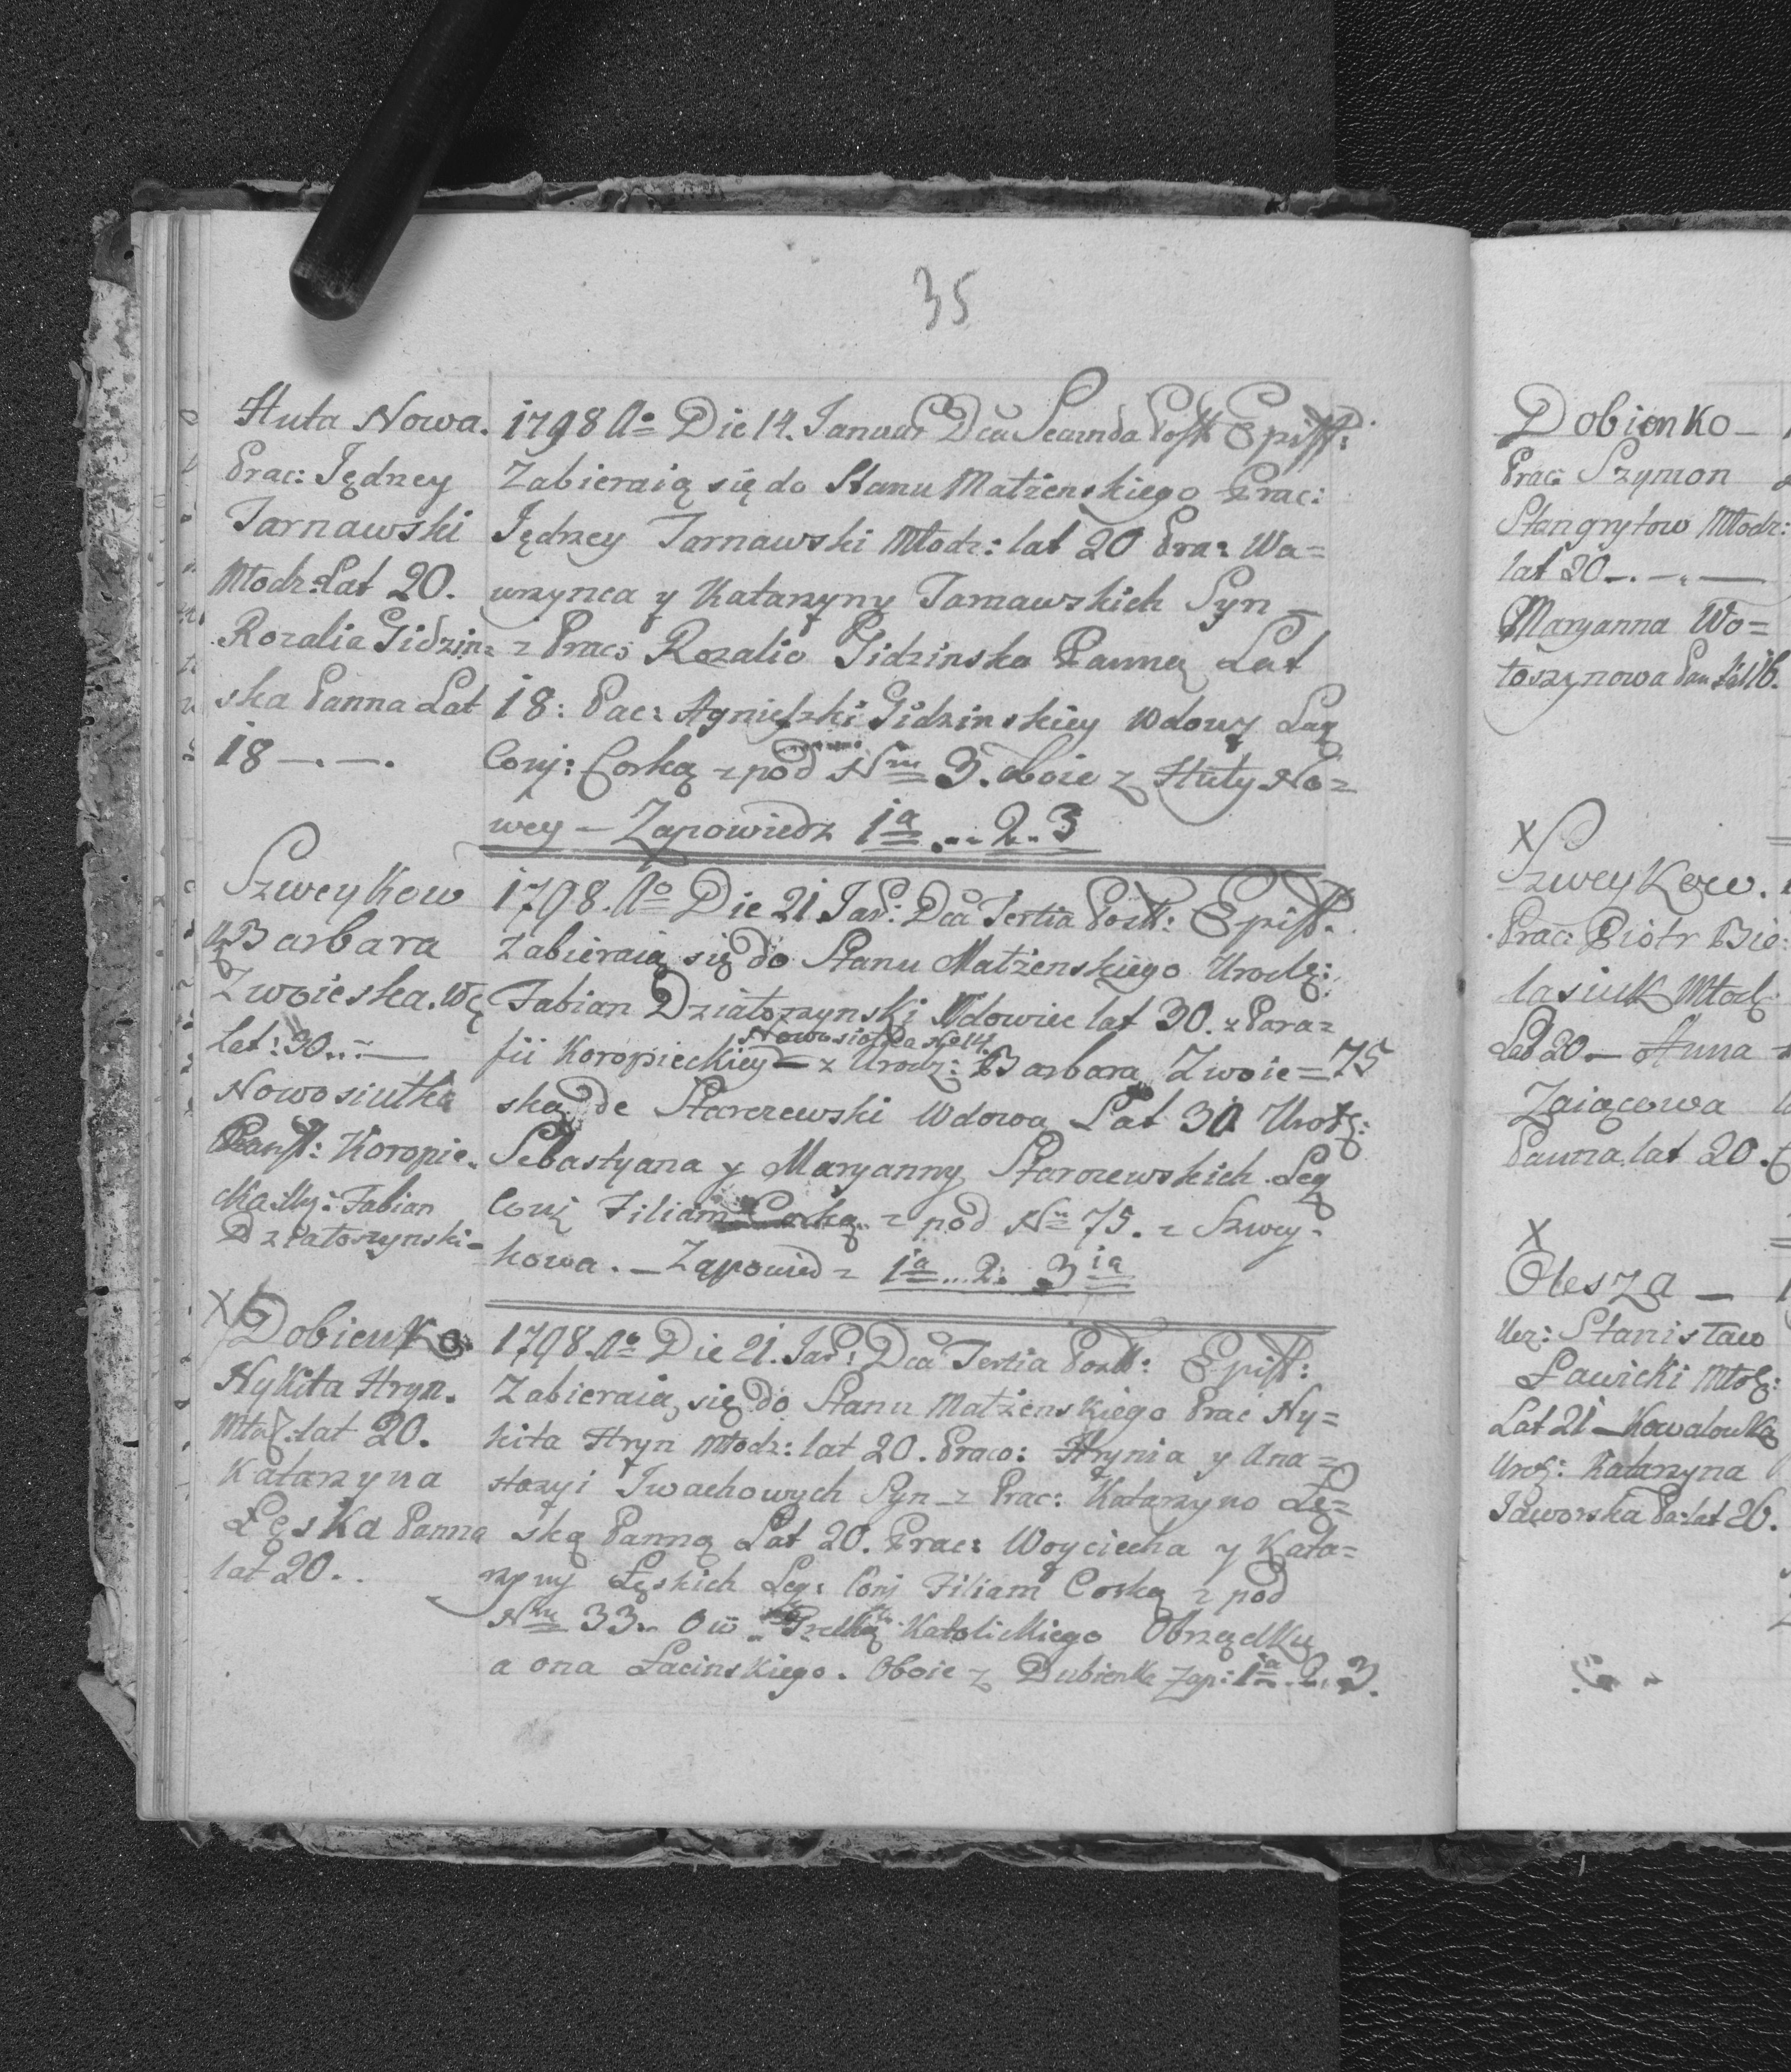 35
Huta Nowa.
Prac: Jędrzey
Tarnawski
Młodz: Lat 20.
Rozalia Gidzin=
ska Panna Lat
18 —. —.
1798 Ao Die 14. Januar Dca Secunda Post Epiff:
Zabieraią się do Stanu Małżenskiego Prac:
Jędrzey Tarnawski Młodz: lat 20 Pra: Wa=
wrzynca y Katarzyny Tarnawskich Syn =
z Prac: Rozalią Gidzinską Panną Lat
18: Pac: Agnieszki Gidzinskiey Wdowy Leg
Conj: Corką z pod Nm 3. oboie z Huty No=
wey — Zapowiedz 1a .. 2 .. 3
Szweykow
Barbara
Zwoieska. Wę
Lat: 30 .. —
Nowosiułka
Paraf: Koropie=
cka My: Fabian
Działoszynski=
1798. Ao Die 21 Jar: Dca Tertia Post: Epiff.
Zabieraią się do Stanu Małżenskiego Urodz:
Fabian Działoszynski Wdowiec lat 30. z Para=
Nowosiołka
fii Koropieckiey — z Urodz: Barbarą Zwoie= 75
ską de Starczewski Wdową Lat 30 Urodz:
Sebastyana y Maryanny Starczewskich Leg
Conj Filiam Corką z pod Nu 75. z Szwey=
kowa. — Zapowied= 1a ... 2: 3ia
X Dobienko.
Nykita Hryn.
Młodz: lat 20.
Katarzyna
Łęska Panna
lat 20..
1798. Ao Die 21. Jar: Dca Tertia Post: Epiff:
Zabieraią się do Stanu Małżenskiego Prac Ny=
kita Hryn Młodz: lat 20. Praco: Hrynia y Ana=
stazyi Iwachowych Syn — z Prac: Katarzyno Łę=
ską Panną Lat 20. Prac: Woyciecha y Kata=
rzyny Łęskich Leg: Conj Filiam Corką z pod
Nm 33.. Ow Grelko Katolickiego Obrządku
a ona Łacinskiego. Oboie z Dubienka Zap: 1a. 2. 3.
Dobienko —
Prac: Szymon
Stangrytow Młodz:
lat 20 —. —. —
Maryanna Wo=
łoszynowa Pan lat 16.
X
Szweykow.
Prac: Piotr Bie=
lasiuk Młodz
Lat 20 — Anna
Zaiącowa
Panna lat 20.
X
Olesza —
Urz: Stanisław
Ławicki Młodz:
Lat 21 — Kowalowka
Urodz: Katarzyna
Jaworska Pa: lat 26.